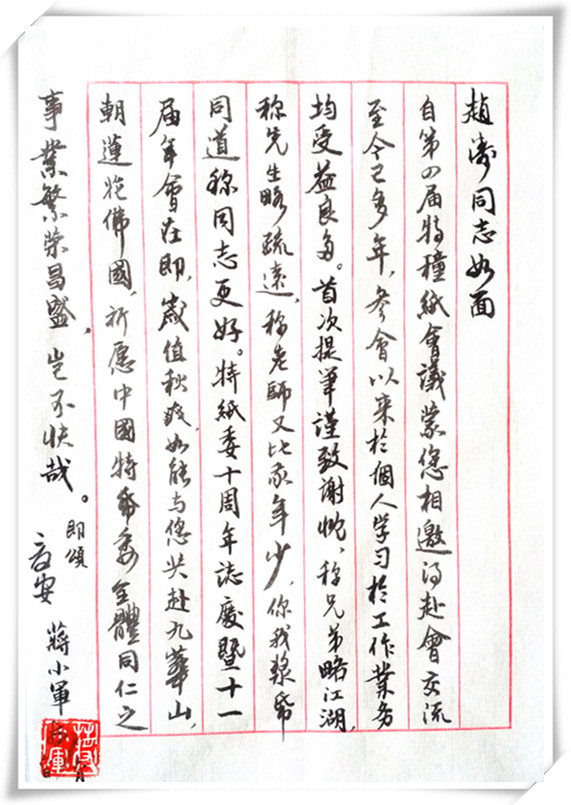 趙濤同志如面
自第四届特種紙會議蒙您相邀得赴會交流
至今已多年，参會以来於個人学习於工作業务
均受益良多。首次提笔謹致谢忱，称兄弟略江湖，
称先生略疏遠，称老師又比我年少，你我漿帋
同道称同志更好。特紙委十周年誌慶暨十一
届年會在即，嵗值秋爽，如能与您共赴九華山，
朝蓮花佛國，祈愿中國特帋委全體同仁之
事業繁荣昌盛，岂不快哉。
即頌
安
蔣小軍